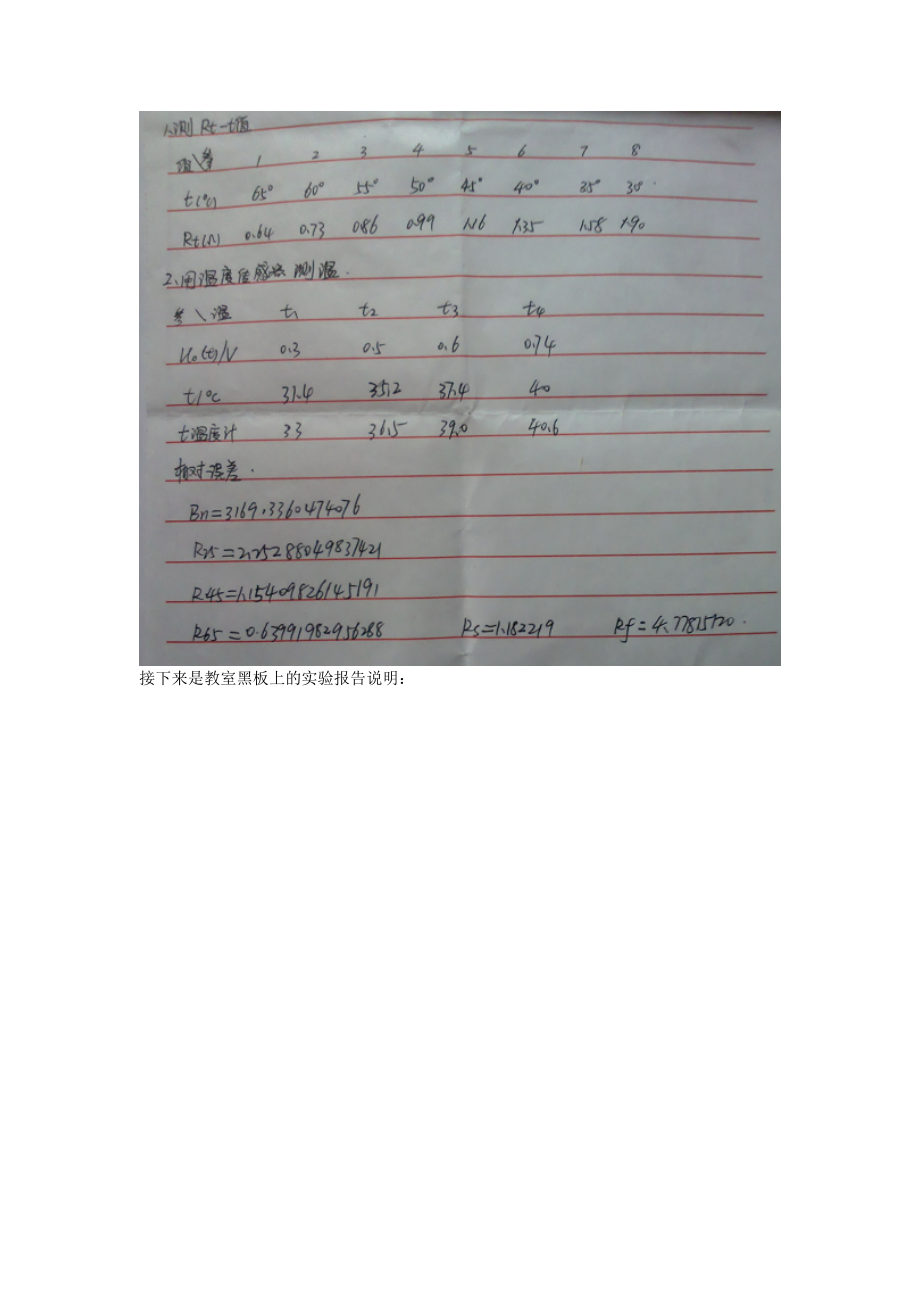 1、测 Rt-t值
值\参 1 2 3 4 5 6 7 8
t(℃) 65° 60° 55° 50° 45° 40° 35° 30°
Rt(Ω) 0.64 0.73 0.86 0.99 1.16 1.35 1.58 1.90
2、用温度传感法测温.
参\温 t1 t2 t3 t4
U0(t)/V 0.3 0.5 0.6 0.74
t/℃ 31.4 35.2 37.4 40
t温度计 33 36.5 39.0 40.6
相对误差.
Bn=3169.3360474076
R25=2.25288049837421
R45=1.15409826145191
R65=0.63991982956288 Rs=1.182219 Rf=4.77815720.
接下来是教室黑板上的实验报告说明：